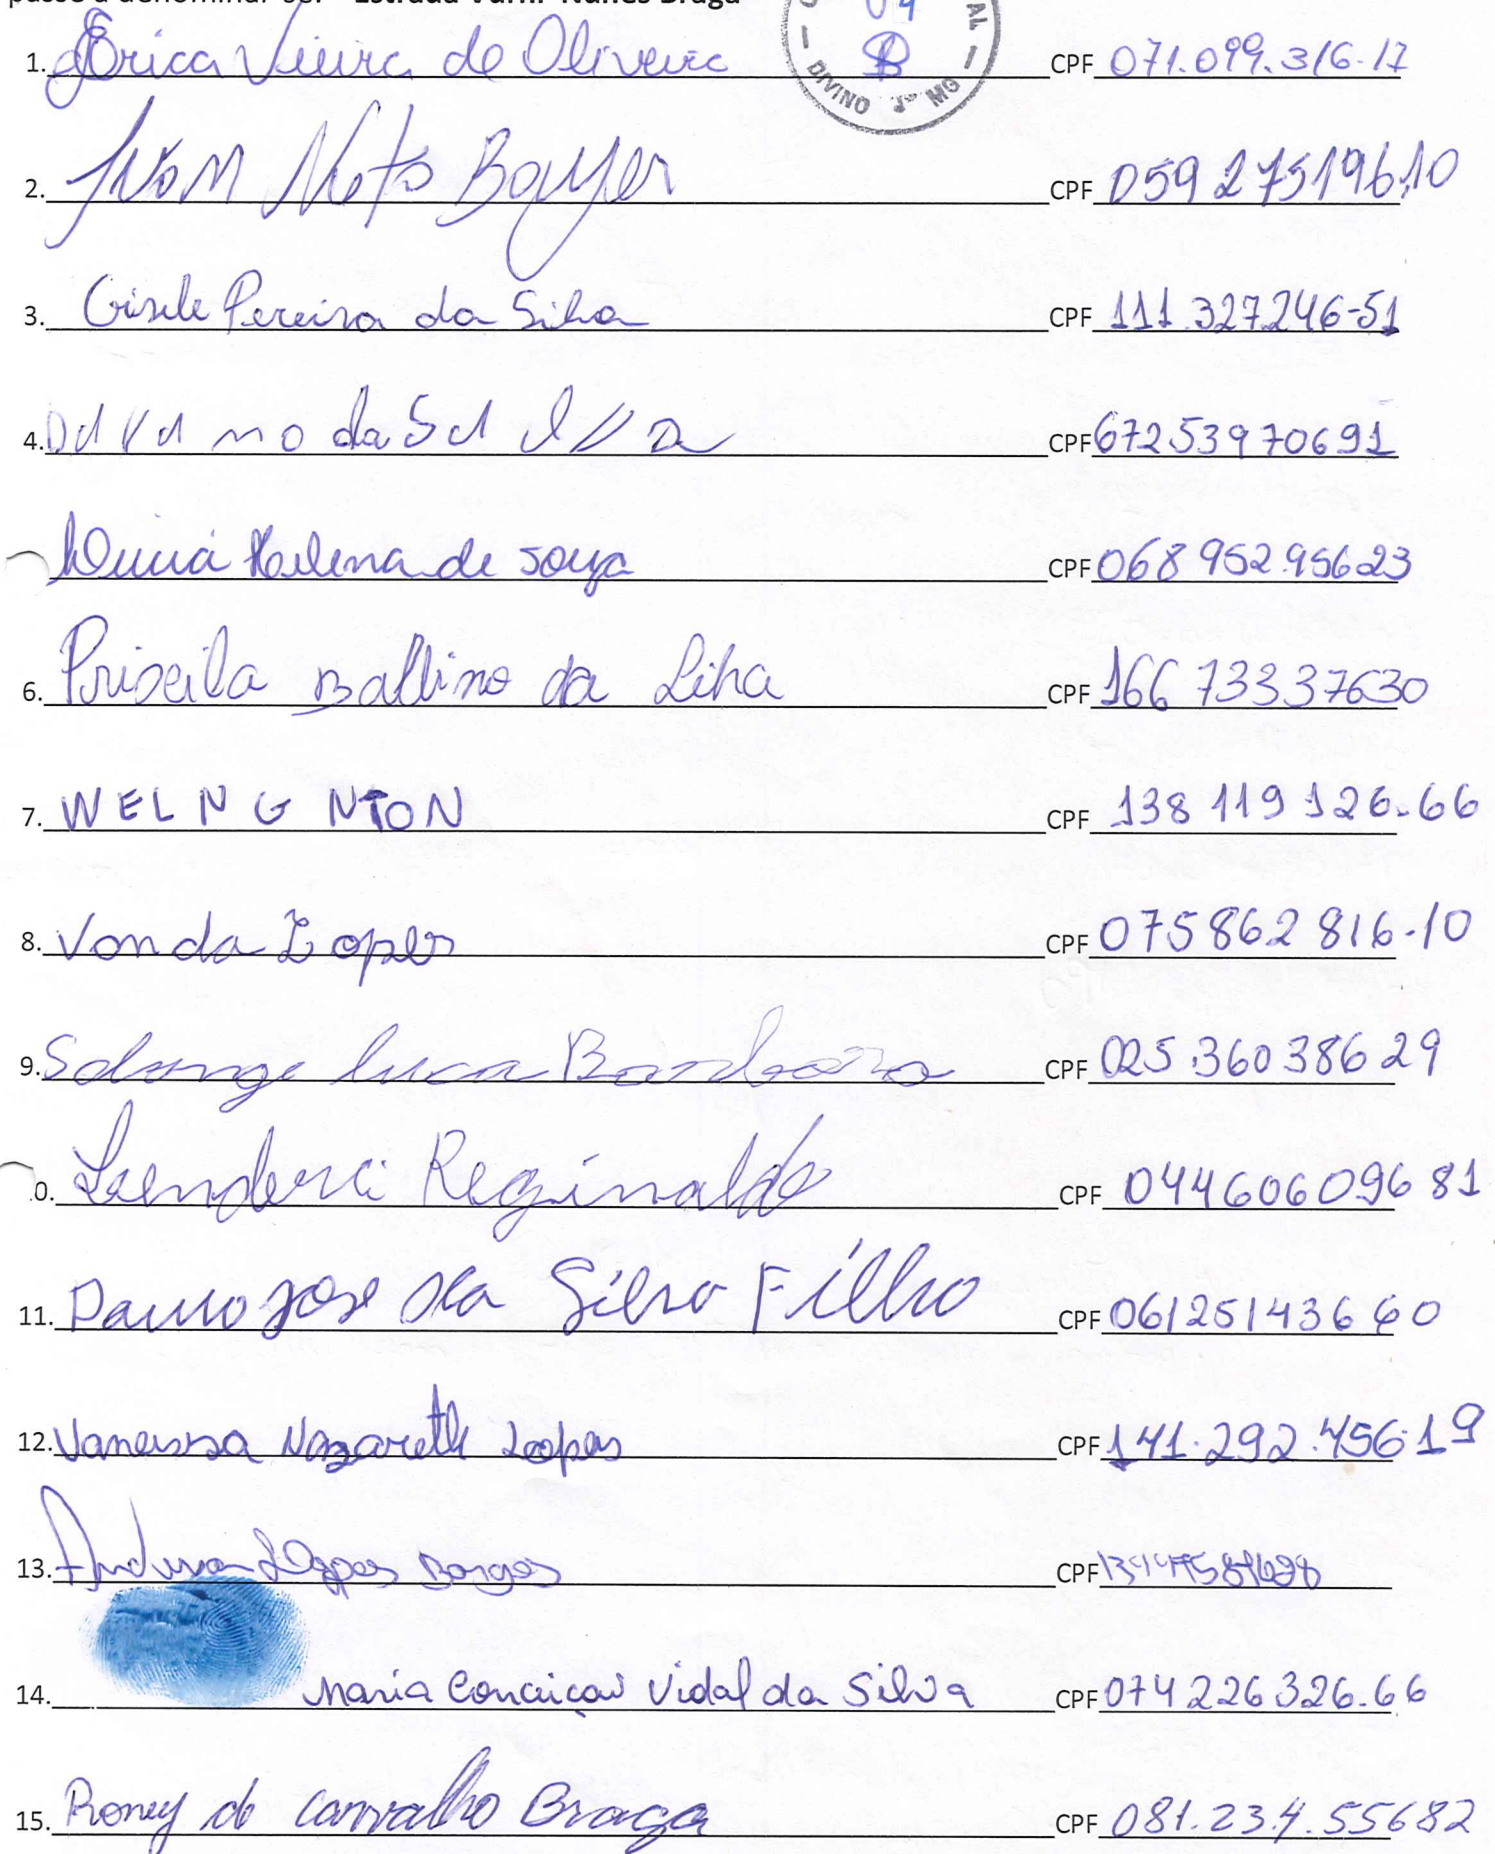 passe a denominar-se: "Estrada Nunes Braga"
04
AL
DIVINO MG
1. Erica Vieira de Oliveira CPF 071.099.316-17
2. Ivom Neto Bayer CPF 059 275196.10
3. Gisele Pereira da Silva CPF 111.327.246-51
4. da CPF 67253970691
Helena de Souza CPF 068 952.95623
6. Priscila da CPF 166 73337630
7. WELNGNTON CPF 138 119 126-66
8. Vonda Lopes CPF 075862 816-10
9. Solange Barbosa CPF 025.360386 29
0. Reginaldo CPF 04460609681
11. Paulo Jose da Silva Filho CPF 06125143660
12. Vanessa Nazareth Lopes CPF 141.292.456-19
13. Lopes Borges CPF
14. Maria Conceiçaõ Vidal da Silva CPF 074226326-66
15. Roney de Carvalho Braga CPF 081.234.55682